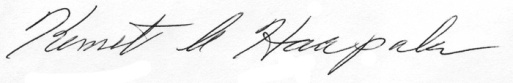 Kermit A Haapala